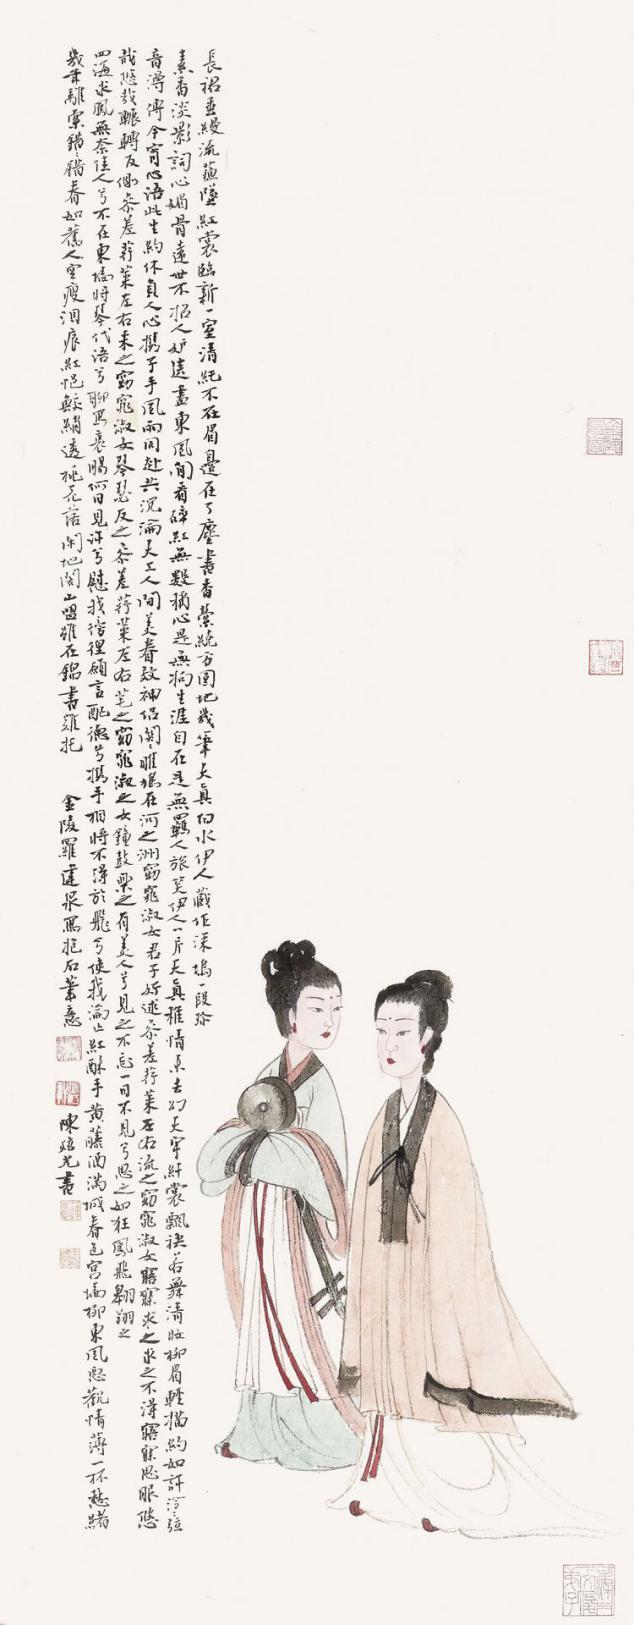 長裙垂縵流蘇墜紅裳臨新一室清純不在眉邊在了塵書香縈繞方圓地幾筆天真向水伊人藏在深塢一段珍
素香淡影詞心媚骨遠世不招人妒遠盡東風閒看碎紅無數猶心是無拘生涯自在是無羈人旅笑伊人一片天真稚情東去幻天宇紆裳飄袂若舞清收柳眉輕描約如訴泠泠弦
音潯傳今宵心語此生約休負人心攜子手風雨同赴共沉淪天工人間美眷效神侶關關雎鳩在河之洲窈窕淑女君子好逑參差荇菜左右流之窈窕淑女寤寐求之求之不得寤寐思服悠
哉悠哉輾轉反側參差荇菜左右采之窈窕淑女琴瑟友之參差荇菜左右芼之窈窕淑女鐘鼓樂之有美人兮見之不忘一日不見兮思之如狂鳳飛翱翔之
四海求鳳無奈佳人兮不在東墻將琴代語兮聊寫衷腸何日見許兮慰我徬徨願言配德兮攜手相將不得於飛兮使我淪亡紅酥手黃藤酒滿城春色宮墻柳東風惡歡情薄一杯愁緒
幾年離索錯錯春如舊人空瘦淚痕紅浥鮫綃透桃花落閑池閣山盟雖在錦書難托 金陵羅建泉寫抱石筆意 陳光書